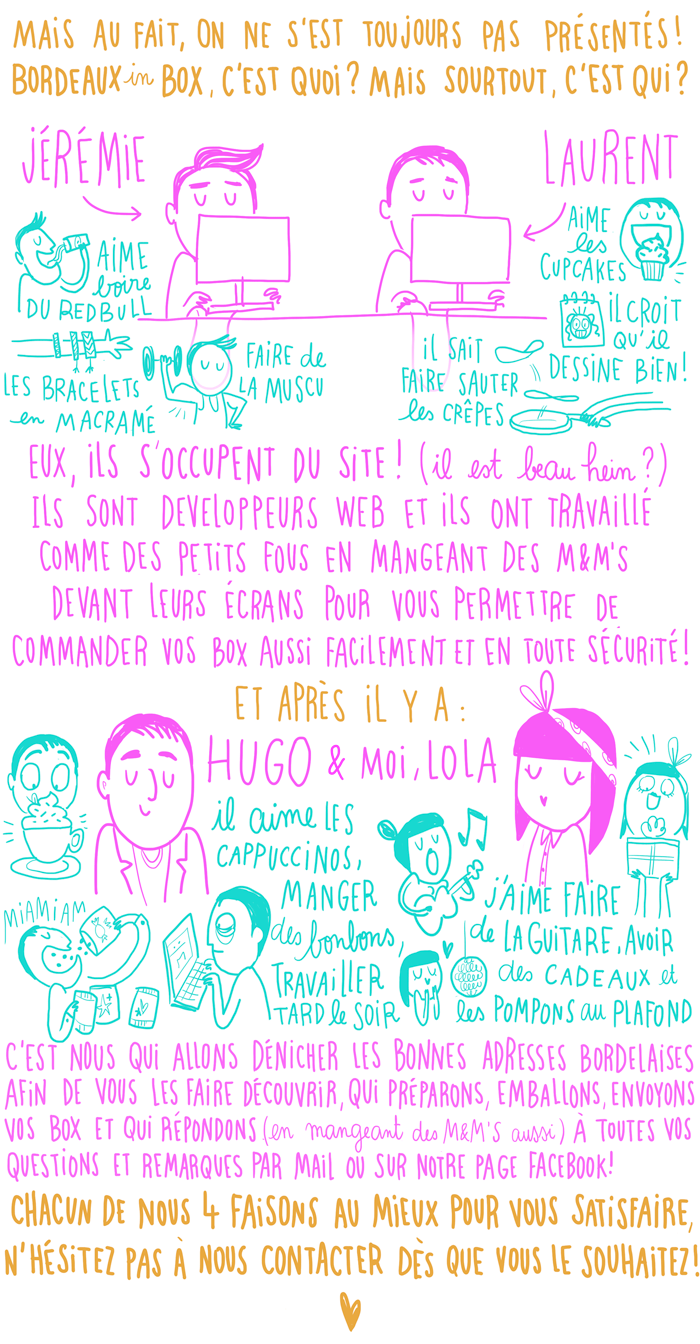 MAIS AU FAIT, ON NE S'EST TOUJOURS PAS PRÉSENTÉS!
BORDEAUX in BOX, C'EST QUOI? MAIS SOURTOUT, C'EST QUI?
JÉRÉMIE
LAURENT
AIME
boire
DU REDBULL
LES BRACELETS
en MACRAMÉ
FAIRE de
LA MUSCU
AIME
les
CUPCAKES
iL CROIT
QU'iL
DESSINE BIEN!
iL SAIT
FAIRE SAUTER
les CRÊPES
EUX, iLS S'OCCUPENT DU SITE! (il est beau hein?)
ILS SONT DEVELOPPEURS WEB ET iLS ONT TRAVAILLÉ
COMME DES PETITS FOUS EN MANGEANT DES M&M'S
DEVANT LEURS ÉCRANS POUR VOUS PERMETTRE DE
COMMANDER VOS BOX AUSSI FACILEMENT ET EN TOUTE SÉCURITÉ!
ET APRÈS iL Y A :
HUGO & MOi, LOLA
il aime LES
CAPPUCCINOS,
MANGER
des bonbons,
TRAVAiLLER
TARD le SOIR
MIAMIAM
J'AIME FAIRE
de LA GUITARE, AVOIR
des CADEAUX et
les POMPONS au PLAFOND
C'EST NOUS QUI ALLONS DÉNICHER LES BONNES ADRESSES BORDELAISES
AFIN DE VOUS LES FAIRE DÉCOUVRIR, QUI PRÉPARONS, EMBALLONS, ENVOYONS
VOS BOX ET QUI RÉPONDONS (en mangeant des M&M'S aussi) À TOUTES VOS
QUESTIONS ET REMARQUES PAR MAIL OU SUR NOTRE PAGE FACEBOOK!
CHACUN DE NOUS 4 FAISONS AU MIEUX POUR VOUS SATISFAIRE,
N'HÉSITEZ PAS À NOUS CONTACTER DÈS QUE VOUS LE SOUHAITEZ!